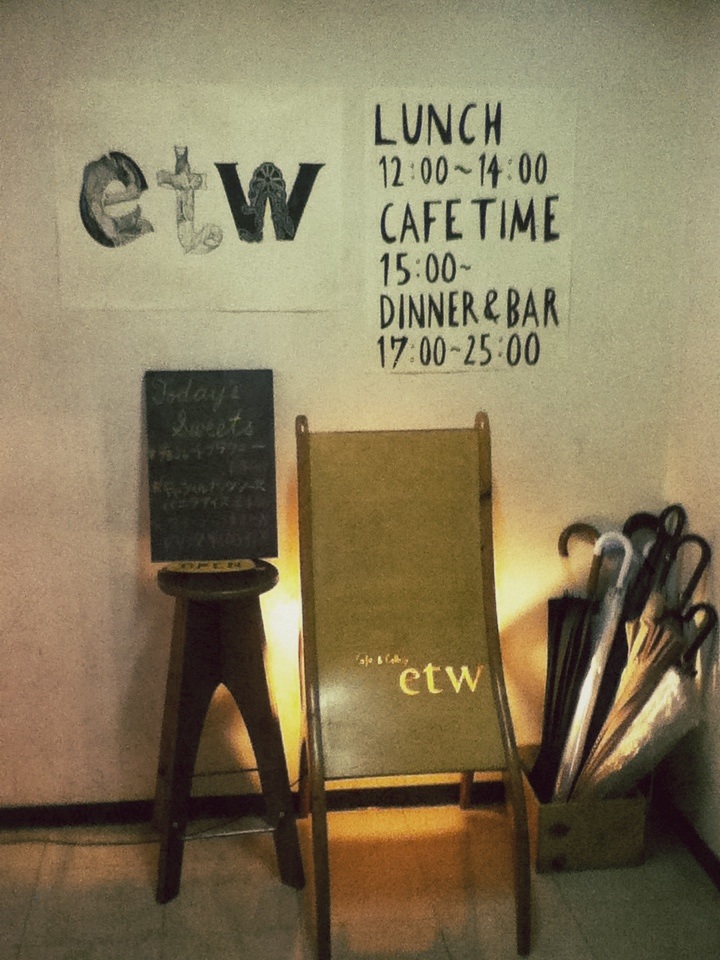 etw
LUNCH
12:00~14:00
CAFE TIME
15:00~
DINNER&BAR
17:00~25:00
Today's
Sweets
OPEN
Cafe & Gallery
etw